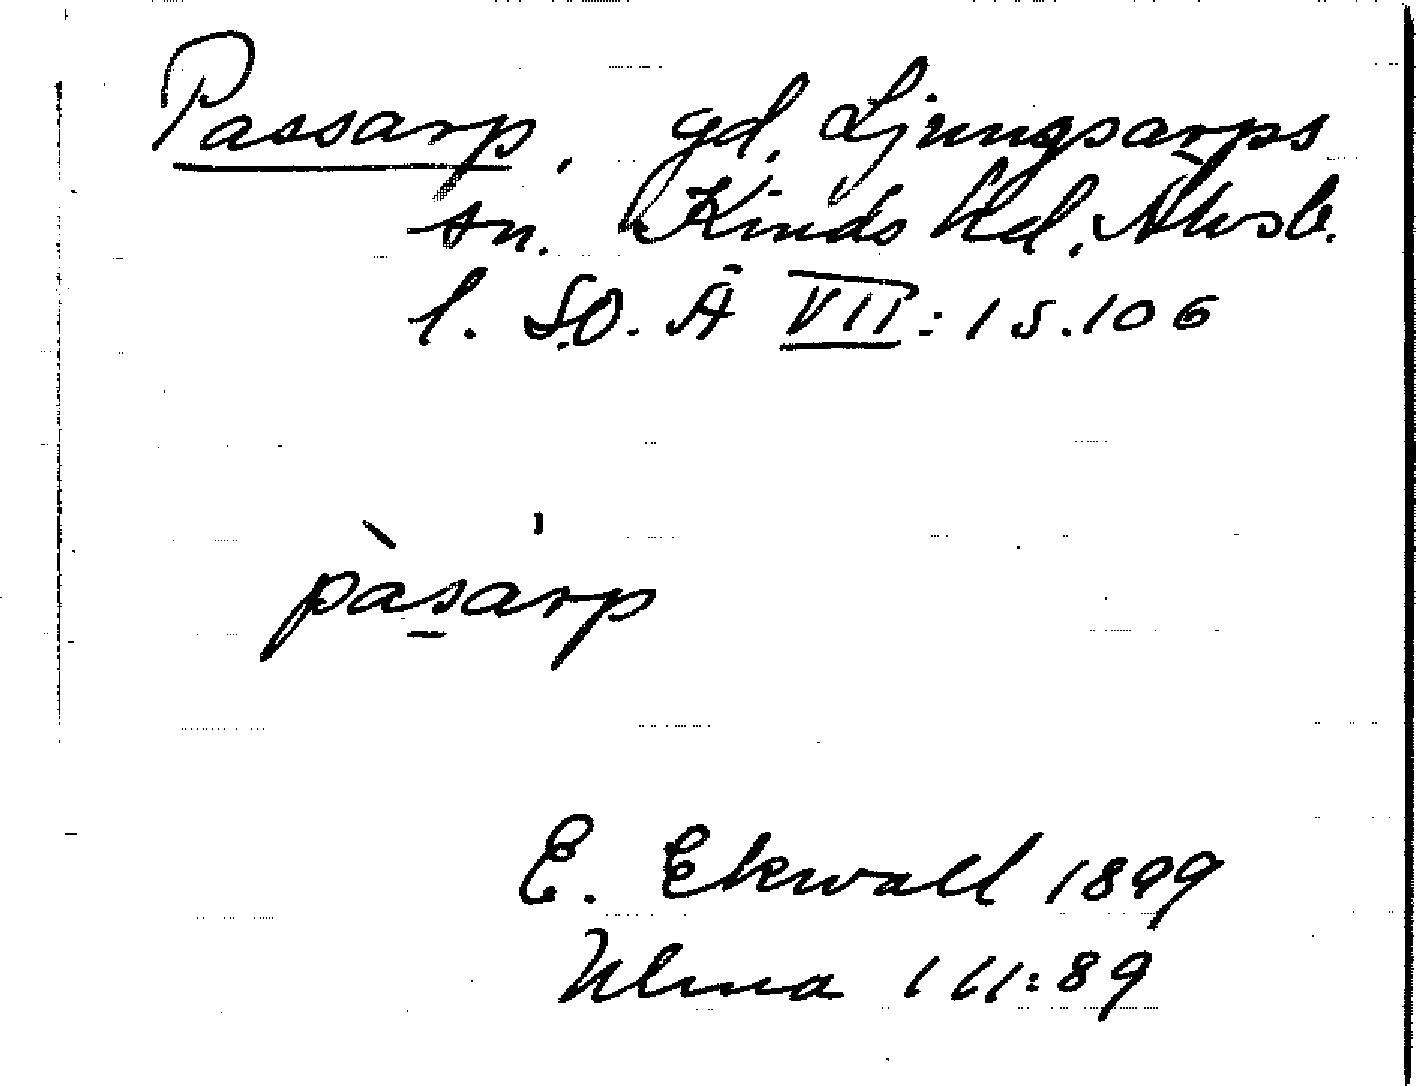 Passarp, gd, Ljungsarps
sn. Kinds hd, Älvsb.
l. S.O. Ä VII: 1 s. 106
pàsarp
E. Ekwall 1899
Ulma 111:89